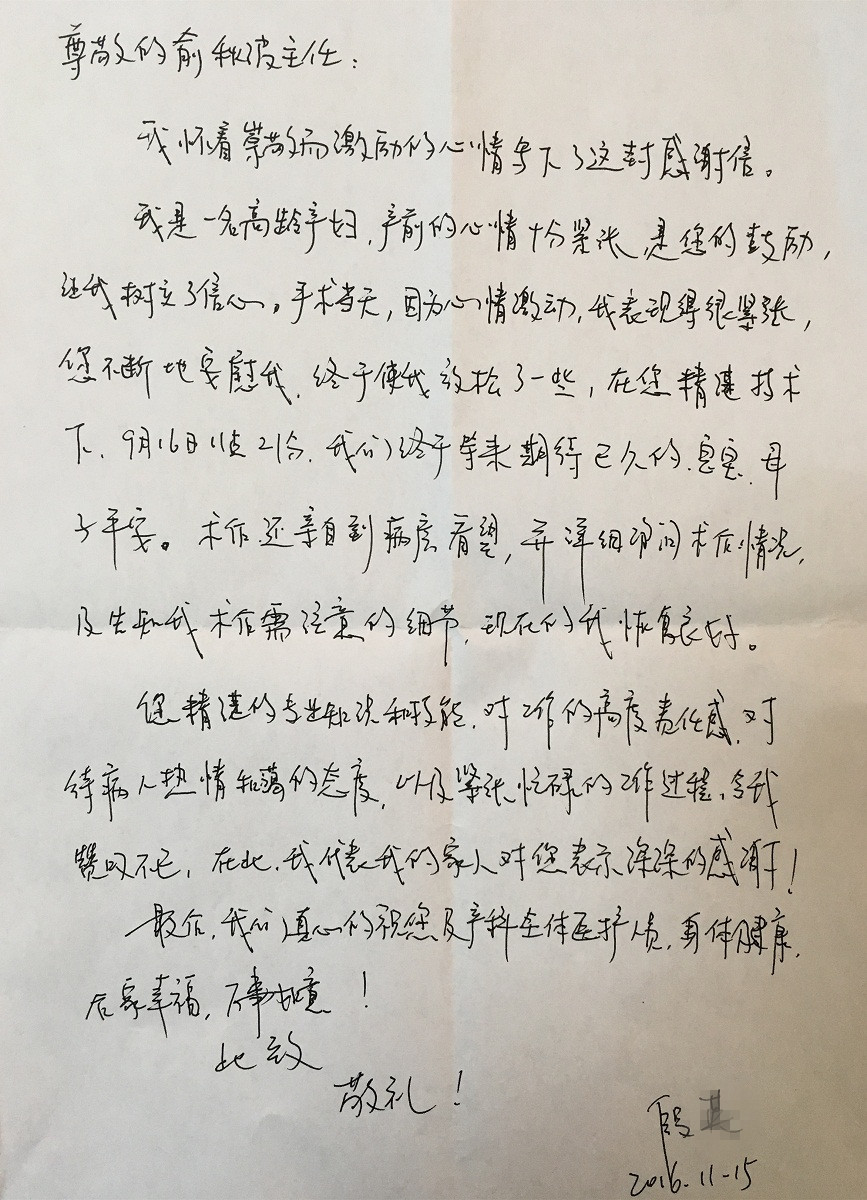 尊敬的俞秋波主任：
我怀着崇敬而激励的心情写下了这封感谢信。
我是一名高龄产妇，产前的心情十分紧张，是您的鼓励，
让我树立了信心。手术当天，因为心情激动，我表现得很紧张，
您不断地安慰我，终于使我放松了一些，在您精湛技术
下，9月16日11点21分，我们终于等来期待已久的宝宝，母
子平安。术后还亲自到病房看望，并详细询问术后情况，
及告知我术后需注意的细节，现在的我恢复良好。
您精湛的专业知识和技能，对工作的高度责任感，对
待病人热情和蔼的态度，以及紧张忙碌的工作过程，令我
赞叹不已，在此，我代表我的家人对您表示深深的感谢！
最后，我们真心的祝您及产科全体医护人员，身体健康，
合家幸福，万事如意！
此致
敬礼！
殷
2016.11-15